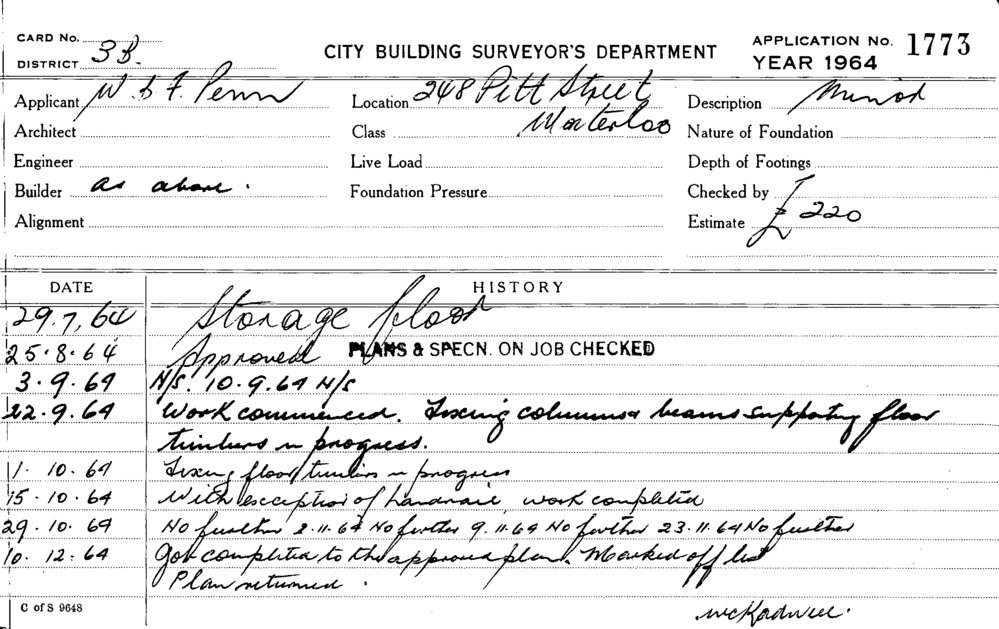 CARD No.
DISTRICT 3B.
CITY BUILDING SURVEYOR'S DEPARTMENT
APPLICATION No. 1773
YEAR 1964
Applicant W & F. Penn
Location 248 Pitt Street
Waterloo
Description Minor
Architect
Class
Nature of Foundation
Engineer
Live Load
Depth of Footings
Builder as above.
Foundation Pressure
Checked by
Alignment
Estimate £ 220
DATE HISTORY
29.7.64 Storage floor
25.8.64 Approved PLANS & SPECN. ON JOB CHECKED
3.9.64 N/S. 10.9.64 N/S
22.9.64 Work commenced. Fixing columns & beams supporting floor
timbers in progress.
1.10.64 Fixing floor timbers in progress
15.10.64 With exception of handrail work completed
29.10.64 No further 2.11.64 No further 9.11.64 No further 23.11.64 No further
10.12.64 Job completed to the approved plan. Marked off list
Plan returned.
C of S 9648